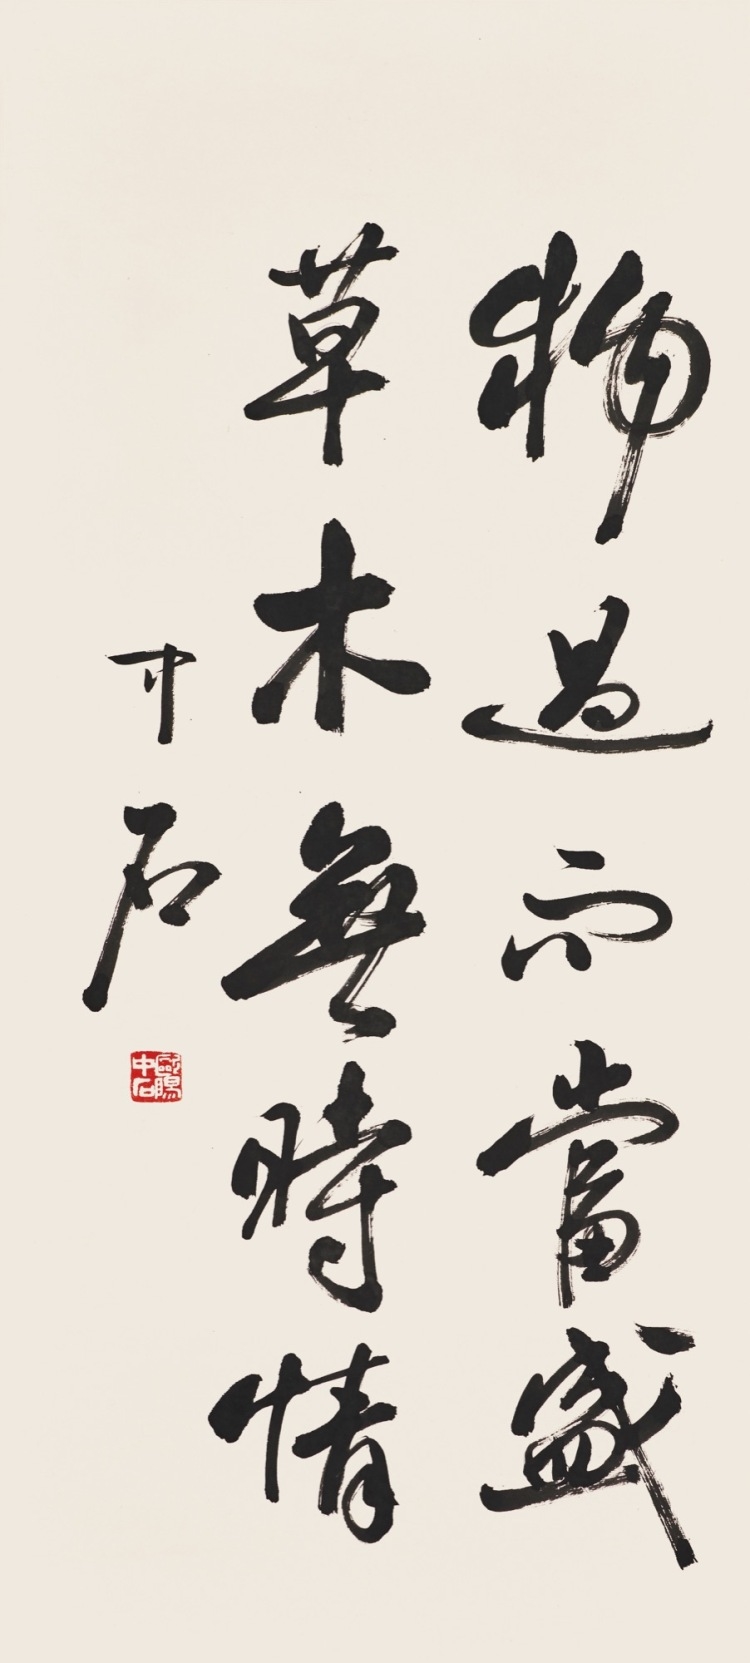 物過不當盛
草木無時情
中石
歐陽中石